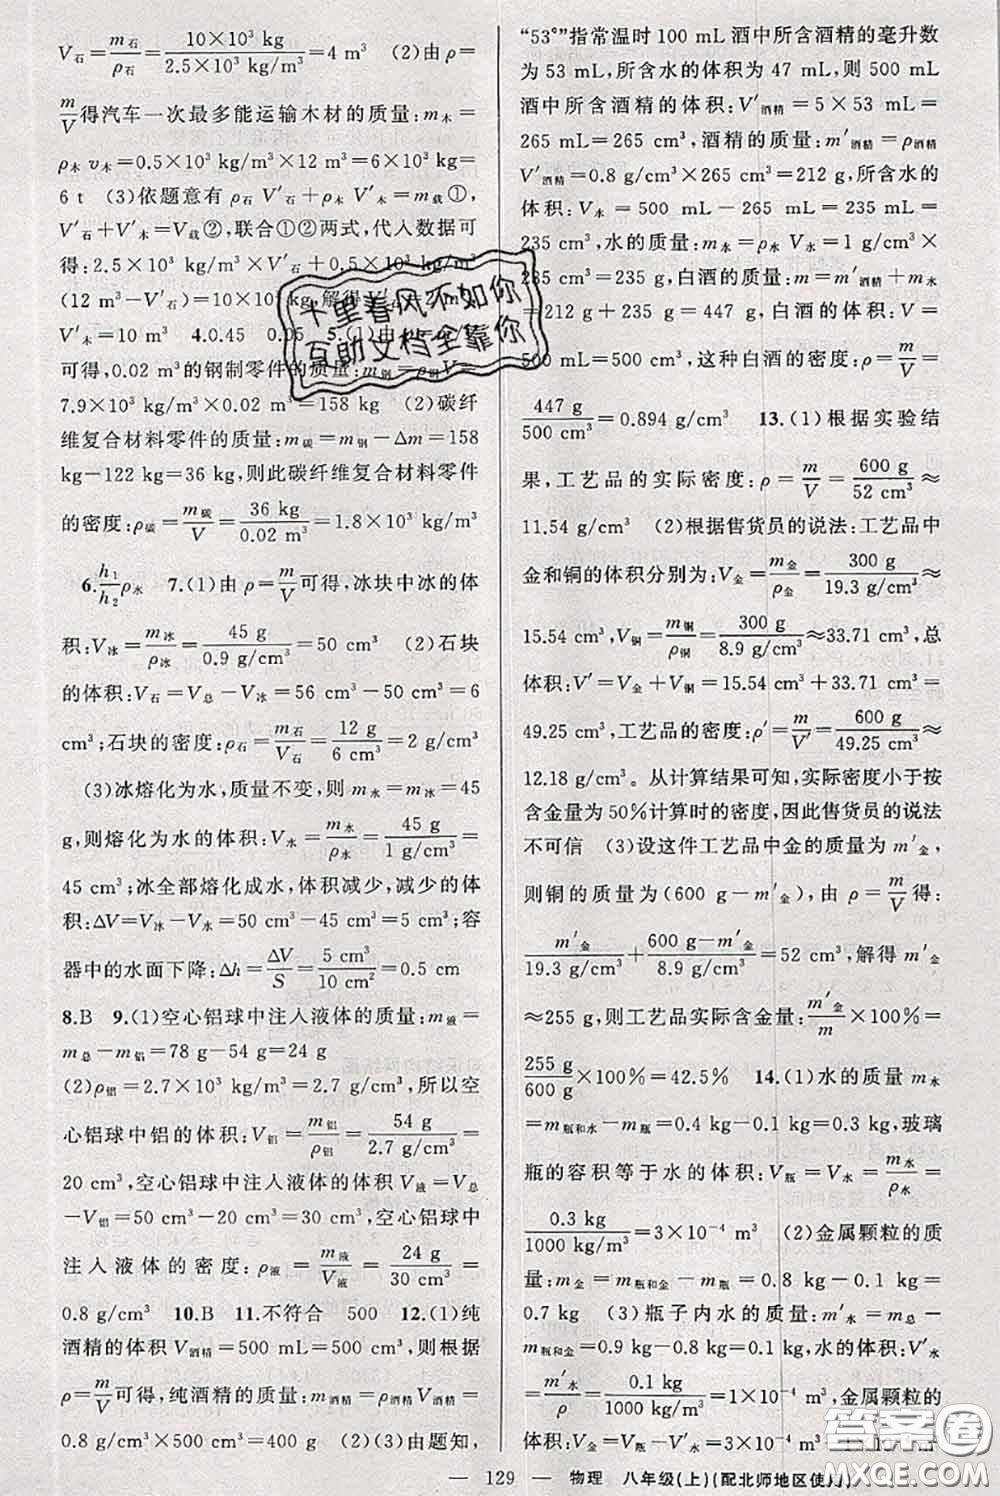 V石=m石/ρ石=10×10³ kg/2.5×10³ kg/m³=4 m³ (2)由 ρ=
m/V得汽车一次最多能运输木材的质量:m木=
ρ木 υ木=0.5×10³ kg/m³×12 m³=6×10³ kg=
6 t (3)依题意有 ρ石 V′石+ρ木 V′木=m载①,
V′石+V′木=V载②,联合①②两式,代入数据可
得:2.5×10³ kg/m³×V′石+0.5×10³ kg/m³×
(12 m³-V′石)=10×10³ kg,解得:V′石=2 m³
V′木=10 m³ 4.0.45 0.05 5.(1)由
可得,0.02 m³的钢制零件的质量:m钢=ρ钢V=
7.9×10³ kg/m³×0.02 m³=158 kg (2)碳纤
维复合材料零件的质量:m碳=m钢-Δm=158
kg-122 kg=36 kg,则此碳纤维复合材料零件
的密度:ρ碳=m碳/V=36 kg/0.02 m³=1.8×10³ kg/m³
6.h₁/h₂ρ水 7.(1)由 ρ=m/V可得,冰块中冰的体
积:V冰=m冰/ρ冰=45 g/0.9 g/cm³=50 cm³ (2)石块
的体积:V石=V总-V冰=56 cm³-50 cm³=6
cm³;石块的密度:ρ石=m石/V石=12 g/6 cm³=2 g/cm³
(3)冰熔化为水,质量不变,则 m水=m冰=45
g,则熔化为水的体积:V水=m水/ρ水=45 g/1 g/cm³=
45 cm³;冰全部熔化成水,体积减少,减少的体
积:ΔV=V冰-V水=50 cm³-45 cm³=5 cm³;容
器中的水面下降:Δh=ΔV/S=5 cm³/10 cm²=0.5 cm
8.B 9.(1)空心铝球中注入液体的质量:m液=
m总-m铝=78 g-54 g=24 g
(2)ρ铝=2.7×10³ kg/m³=2.7 g/cm³,所以空
心铝球中铝的体积:V铝=m铝/ρ铝=54 g/2.7 g/cm³=
20 cm³,空心铝球中注入液体的体积 V液=V总
-V铝=50 cm³-20 cm³=30 cm³,空心铝球中
注入液体的密度:ρ液=m液/V液=24 g/30 cm³=
0.8 g/cm³ 10.B 11.不符合 500 12.(1)纯
酒精的体积 V酒精=500 mL=500 cm³,则根据
ρ=m/V可得,纯酒精的质量:m酒精=ρ酒精V酒精=
0.8 g/cm³×500 cm³=400 g (2)(3)由题知,
“53°”指常温时 100 mL 酒中所含酒精的毫升数
为 53 mL,所含水的体积为 47 mL,则 500 mL
酒中所含酒精的体积:V′酒精=5×53 mL=
265 mL=265 cm³,酒精的质量:m′酒精=ρ酒精
V′酒精=0.8 g/cm³×265 cm³=212 g,所含水的
体积:V水=500 mL-265 mL=235 mL=
235 cm³,水的质量:m水=ρ水 V水=1 g/cm³
×235 cm³=235 g,白酒的质量:m′酒精+m水
=212 g+235 g=447 g,白酒的体积:V=
500 mL=500 cm³,这种白酒的密度:ρ=m/V=
447 g/500 cm³=0.894 g/cm³ 13.(1)根据实验结
果,工艺品的实际密度:ρ=m/V=600 g/52 cm³≈
11.54 g/cm³ (2)根据售货员的说法:工艺品中
金和铜的体积分别为:V金=m金/ρ金=300 g/19.3 g/cm³≈
15.54 cm³,V铜=m铜/ρ铜=300 g/8.9 g/cm³≈33.71 cm³,总
体积:V′=V金+V铜=15.54 cm³+33.71 cm³=
49.25 cm³,工艺品的密度:ρ′=m/V′=600 g/49.25 cm³≈
12.18 g/cm³。从计算结果可知,实际密度小于按
含金量为50%计算时的密度,因此售货员的说法
不可信 (3)设这件工艺品中金的质量为 m′金,
则铜的质量为(600 g-m′金),由 ρ=m/V得:
m′金/19.3 g/cm³+600 g-m′金/8.9 g/cm³=52 cm³,解得 m′金
≈255 g,则工艺品实际含金量:m′金/m×100%=
255 g/600 g×100%=42.5% 14.(1)水的质量 m水
=m瓶和水-m瓶=0.4 kg-0.1 kg=0.3 kg,玻璃
瓶的容积等于水的体积:V瓶=V水=m水/ρ水=
0.3 kg/1000 kg/m³=3×10⁻⁴ m³ (2)金属颗粒的质
量:m金=m瓶和金-m瓶=0.8 kg-0.1 kg=
0.7 kg (3)瓶子内水的质量:m′水=m总-
m瓶和金=0.9 kg-0.8 kg=0.1 kg,水的体积:V′水
=m′水/ρ=0.1 kg/1000 kg/m³=1×10⁻⁴ m³,金属颗粒的
体积:V金=V瓶-V′水=3×10⁻⁴ m³-1×10⁻⁴
— 129 — 物理 八年级(上)(配北师地区使用)
十里春风不如你
互助文档全靠你
答案圈
MXQE.COM